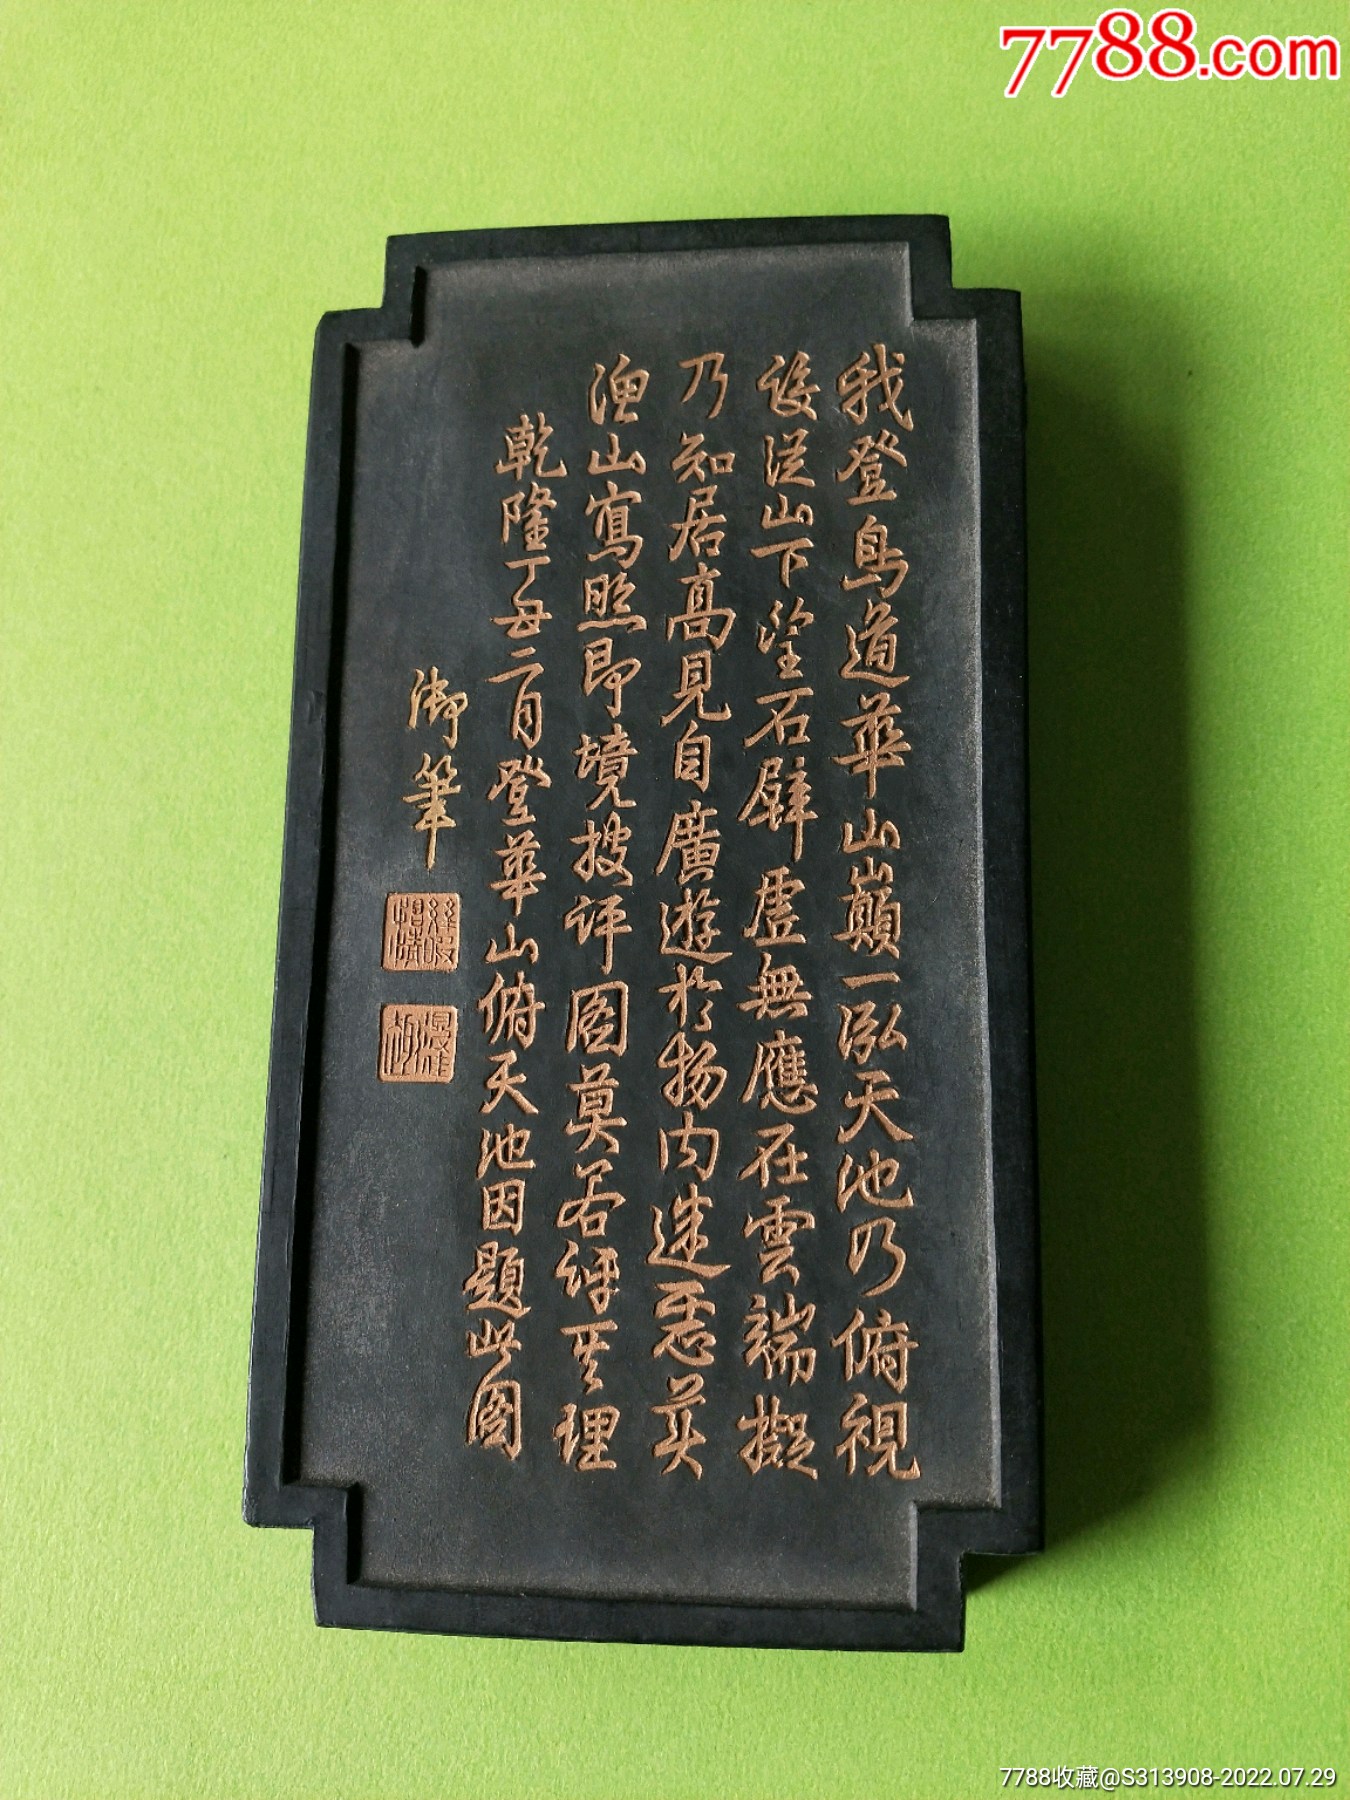 7788.com
我登鳥道華山巔一泓天池乃俯視
設從山下望石壁虛無應在雲端擬
乃知居高見自廣遊於物內迷惡美
漁山寫照即境披評圖莫若評其理
乾隆丁丑二月登華山俯天池因題此圖
御筆
7788收藏@S313908-2022.07.29